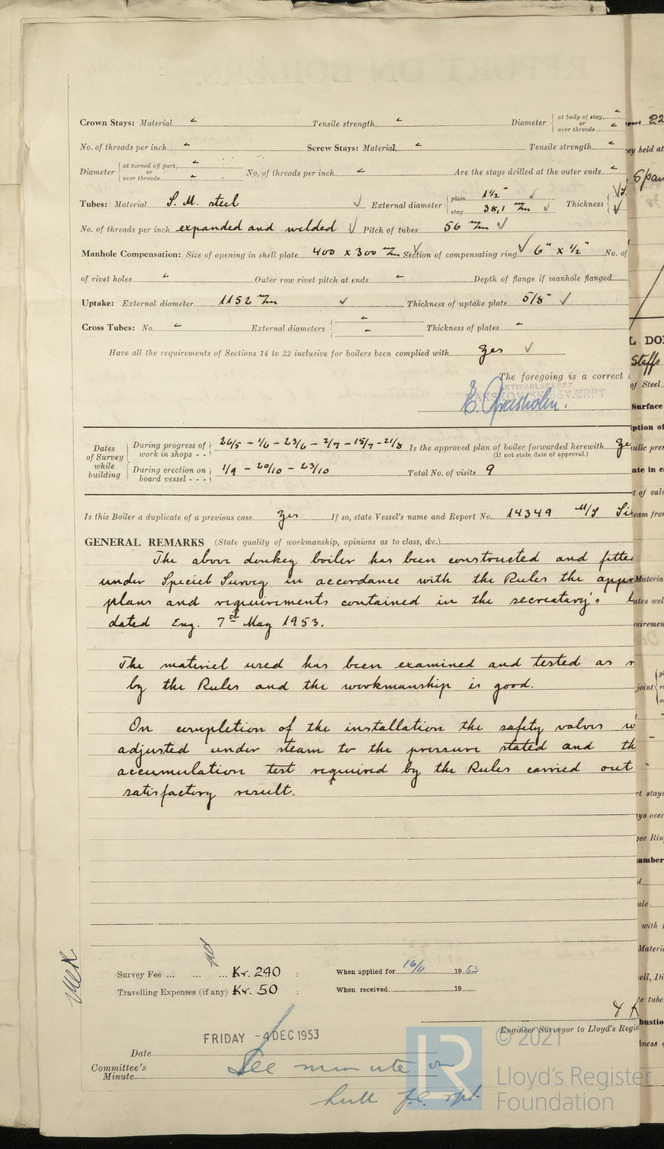 Crown Stays: Material - Tensile strength - Diameter { at body of stay, - or over threads -
No. of threads per inch - Screw Stays: Material - Tensile strength -
Diameter { at turned off part, - or over threads - No. of threads per inch - Are the stays drilled at the outer ends -
Tubes: Material S. M. steel ✓ External diameter { plain 1½" ✓ stay 38,1 ✓ Thickness {
No. of threads per inch expanded and welded ✓ Pitch of tubes 56 ✓
Manhole Compensation: Size of opening in shell plate 400 x 300 ✓ Section of compensating ring ✓ 6" x ½" No. of
of rivet holes - Outer row rivet pitch at ends - Depth of flange if manhole flanged
Uptake: External diameter 1152 ✓ Thickness of uptake plate 5/8" ✓
Cross Tubes: No. - External diameters { - - Thickness of plates -
Have all the requirements of Sections 14 to 22 inclusive for boilers been complied with yes ✓
The foregoing is a correct
Dates of Survey while building { During progress of work in shops - - { 26/5 - 1/6 - 23/6 - 2/7 - 15/7 - 21/8 Is the approved plan of boiler forwarded herewith
(If not state date of approval.)
During erection on board vessel - - - { 1/9 - 20/10 - 23/10 Total No. of visits 9
Is this Boiler a duplicate of a previous case yes If so, state Vessel's name and Report No. 14349 M/S
GENERAL REMARKS (State quality of workmanship, opinions as to class, &c.)
The above donkey boiler has been constructed and fitte
under Special Survey in accordance with the Rules the appr
plans and requirements contained in the secreatary's
dated Eng. 7th May 1953.
The materiel used has been examined and tested as r
by the Rules and the workmanship is good.
On completion of the installation the safety valves w
adjusted under steam to the pressure stated and th
accumulation test required by the Rules carried out
satisfactory result.
Survey Fee ... ... ... Kr. 240 : When applied for 16/11 1953
Travelling Expenses (if any) Kr. 50 : When received 19
Engineer Surveyor to Lloyd's Regis
FRIDAY -4 DEC 1953
Date
Committee's Minute
See minute on
hull f.e. rpt.
© 2021
Lloyd's Register
Foundation